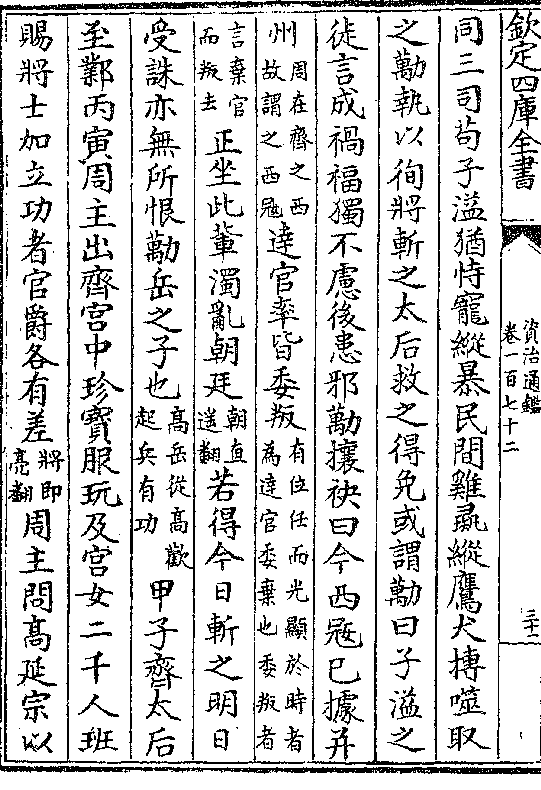 欽定四庫全書
資治通鑑
卷一百七十二
三十二
同三司苟子溢猶恃寵縱暴民間雞彘縱鷹犬搏噬取
之勱執以徇將斬之太后救之得免或謂勱曰子溢之
徒言成禍福獨不慮後患邪勱攘袂曰今西冦已據并
州周在齊之西故謂之西冦達官率皆委叛有位任而光顯於時者為達官委棄也委叛者
言棄官而叛去正坐此輩濁亂朝廷朝直遥翻若得今日斬之明日
受誅亦無所恨勱岳之子也高岳從高歡起兵有功甲子齊太后
至鄴丙寅周主出齊宫中珍寶服玩及宫女二千人班
賜將士加立功者官爵各有差將即亮翻周主問高延宗以